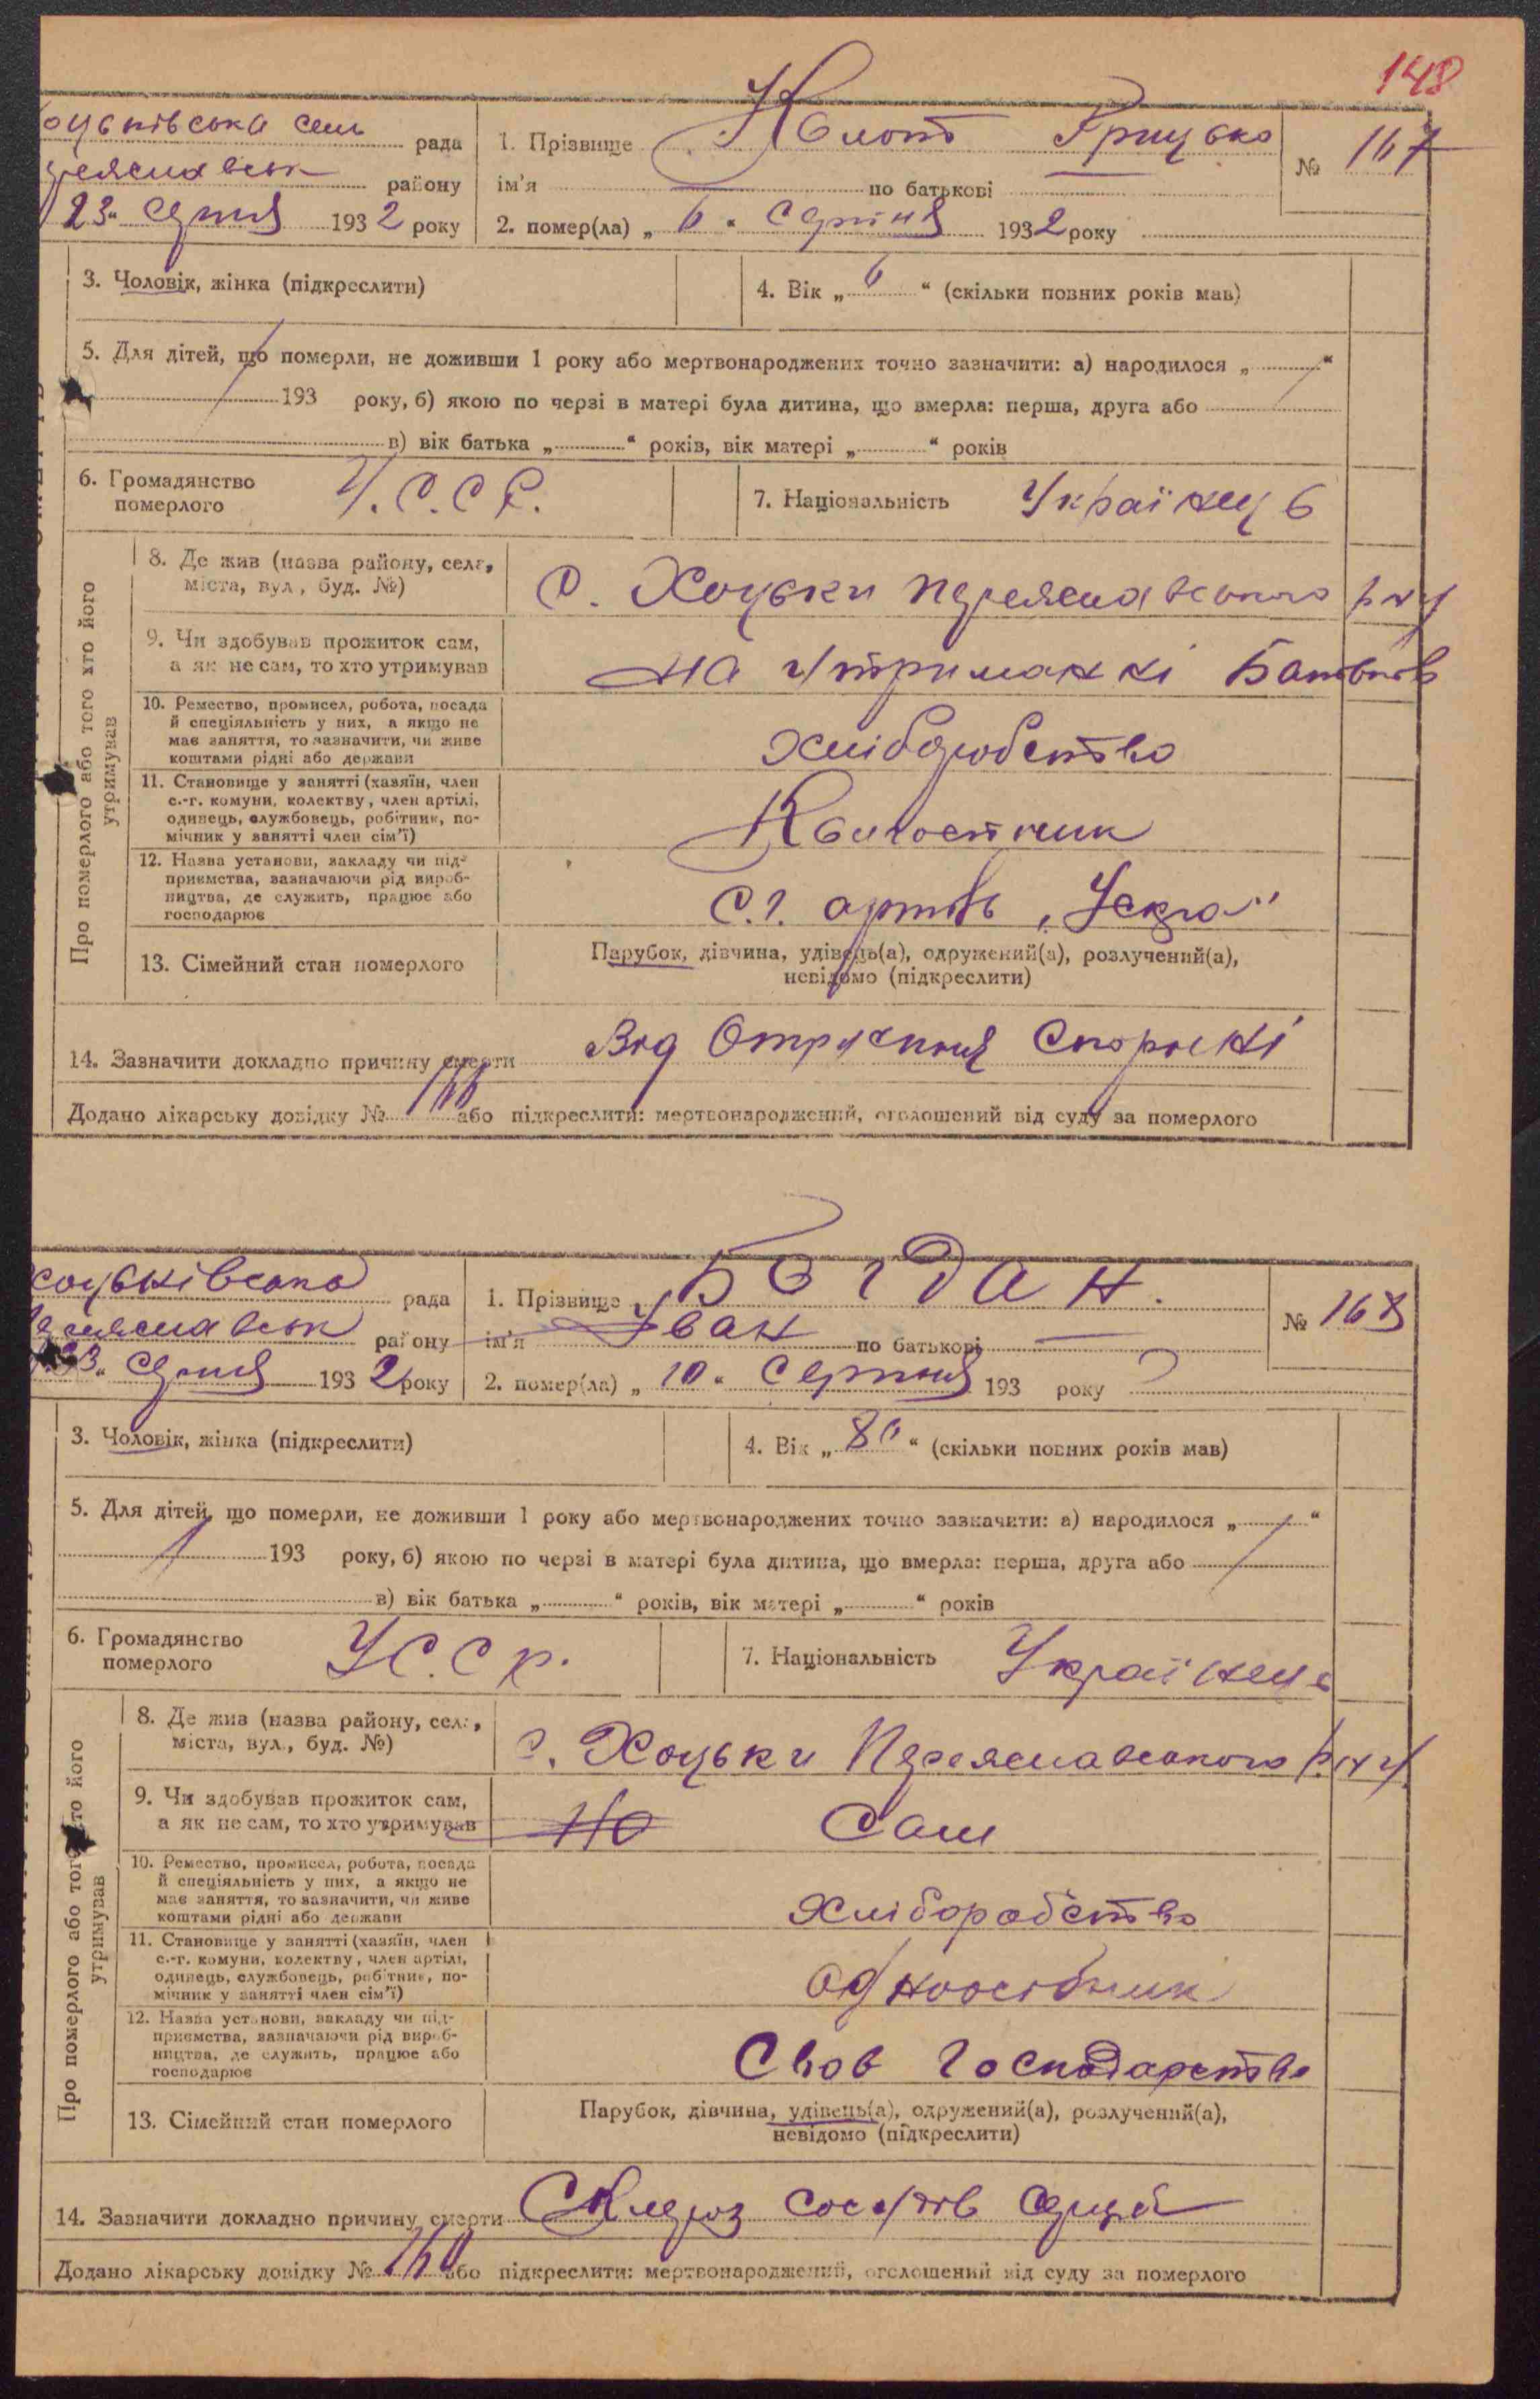 148
оцьківська сель рада
району
23 " серпня 1932 року
1. Прізвище Колот Грицько
ім'я — по батькові
№ 167
2. помер(ла) „ 6 " серпня 1932 року
3. Чоловік, жінка (підкреслити)
4. Вік „ 6 " (скільки повних років мав)
5. Для дітей, що померли, не доживши 1 року або мертвонароджених точно зазначити: а) народилося „ "
193 року, б) якою по черзі в матері була дитина, що вмерла: перша, друга або
в) вік батька „ " років, вік матері „ " років
6. Громадянство
померлого
У.С.С.Р.
7. Національність Українець
Про померлого або того хто його
утримував
8. Де жив (назва району, села,
міста, вул., буд. №)
с. Хоцьки Переяславського р-ну
9. Чи здобував прожиток сам,
а як не сам, то хто утримував
на утриманні Батьків
10. Ремество, промисел, робота, посада
й спеціяльність у них, а якщо не
має заняття, то зазначити, чи живе
коштами рідні або держави
хліборобство
11. Становище у занятті (хазяїн, член
с.-г. комуни, колективу, член артілі,
одинець, службовець, робітник, по-
мічник у занятті член сім'ї)
12. Назва установи, закладу чи під-
приємства, зазначаючи рід вироб-
ництва, де служить, працює або
господарює
С.г. артіль „Іскра"
13. Сімейний стан померлого
Парубок, дівчина, удівець(а), одружений(а), розлучений(а),
невідомо (підкреслити)
14. Зазначити докладно причину смерти Від Отруєння
Додано лікарську довідку № 166 або підкреслити: мертвонароджений, оголошений від суду за померлого
хоцьківська рада
району
23 " серпня 1932 року
1. Прізвище Богдан.
ім'я Іван по батькові —
№ 168
2. помер(ла) „ 10 " серпня 193 року
3. Чоловік, жінка (підкреслити)
4. Вік „ 80 " (скільки повних років мав)
5. Для дітей, що померли, не доживши 1 року або мертвонароджених точно зазначити: а) народилося „ "
193 року, б) якою по черзі в матері була дитина, що вмерла: перша, друга або
в) вік батька „ " років, вік матері „ " років
6. Громадянство
померлого
УС.С.Р.
7. Національність Українець
Про померлого або того хто його
утримував
8. Де жив (назва району, села,
міста, вул., буд. №)
с. Хоцьки Переяславського р.ну.
9. Чи здобував прожиток сам,
а як не сам, то хто утримував
На Сам
10. Ремество, промисел, робота, посада
й спеціяльність у них, а якщо не
має заняття, то зазначити, чи живе
коштами рідні або держави
хліборобство
11. Становище у занятті (хазяїн, член
с.-г. комуни, колективу, член артілі,
одинець, службовець, робітник, по-
мічник у занятті член сім'ї)
Одноосібник
12. Назва установи, закладу чи під-
приємства, зазначаючи рід вироб-
ництва, де служить, працює або
господарює
Своє Господарство
13. Сімейний стан померлого
Парубок, дівчина, удівець(а), одружений(а), розлучений(а),
невідомо (підкреслити)
14. Зазначити докладно причину смерти Склероз серця
Додано лікарську довідку № або підкреслити: мертвонароджений, оголошений від суду за померлого